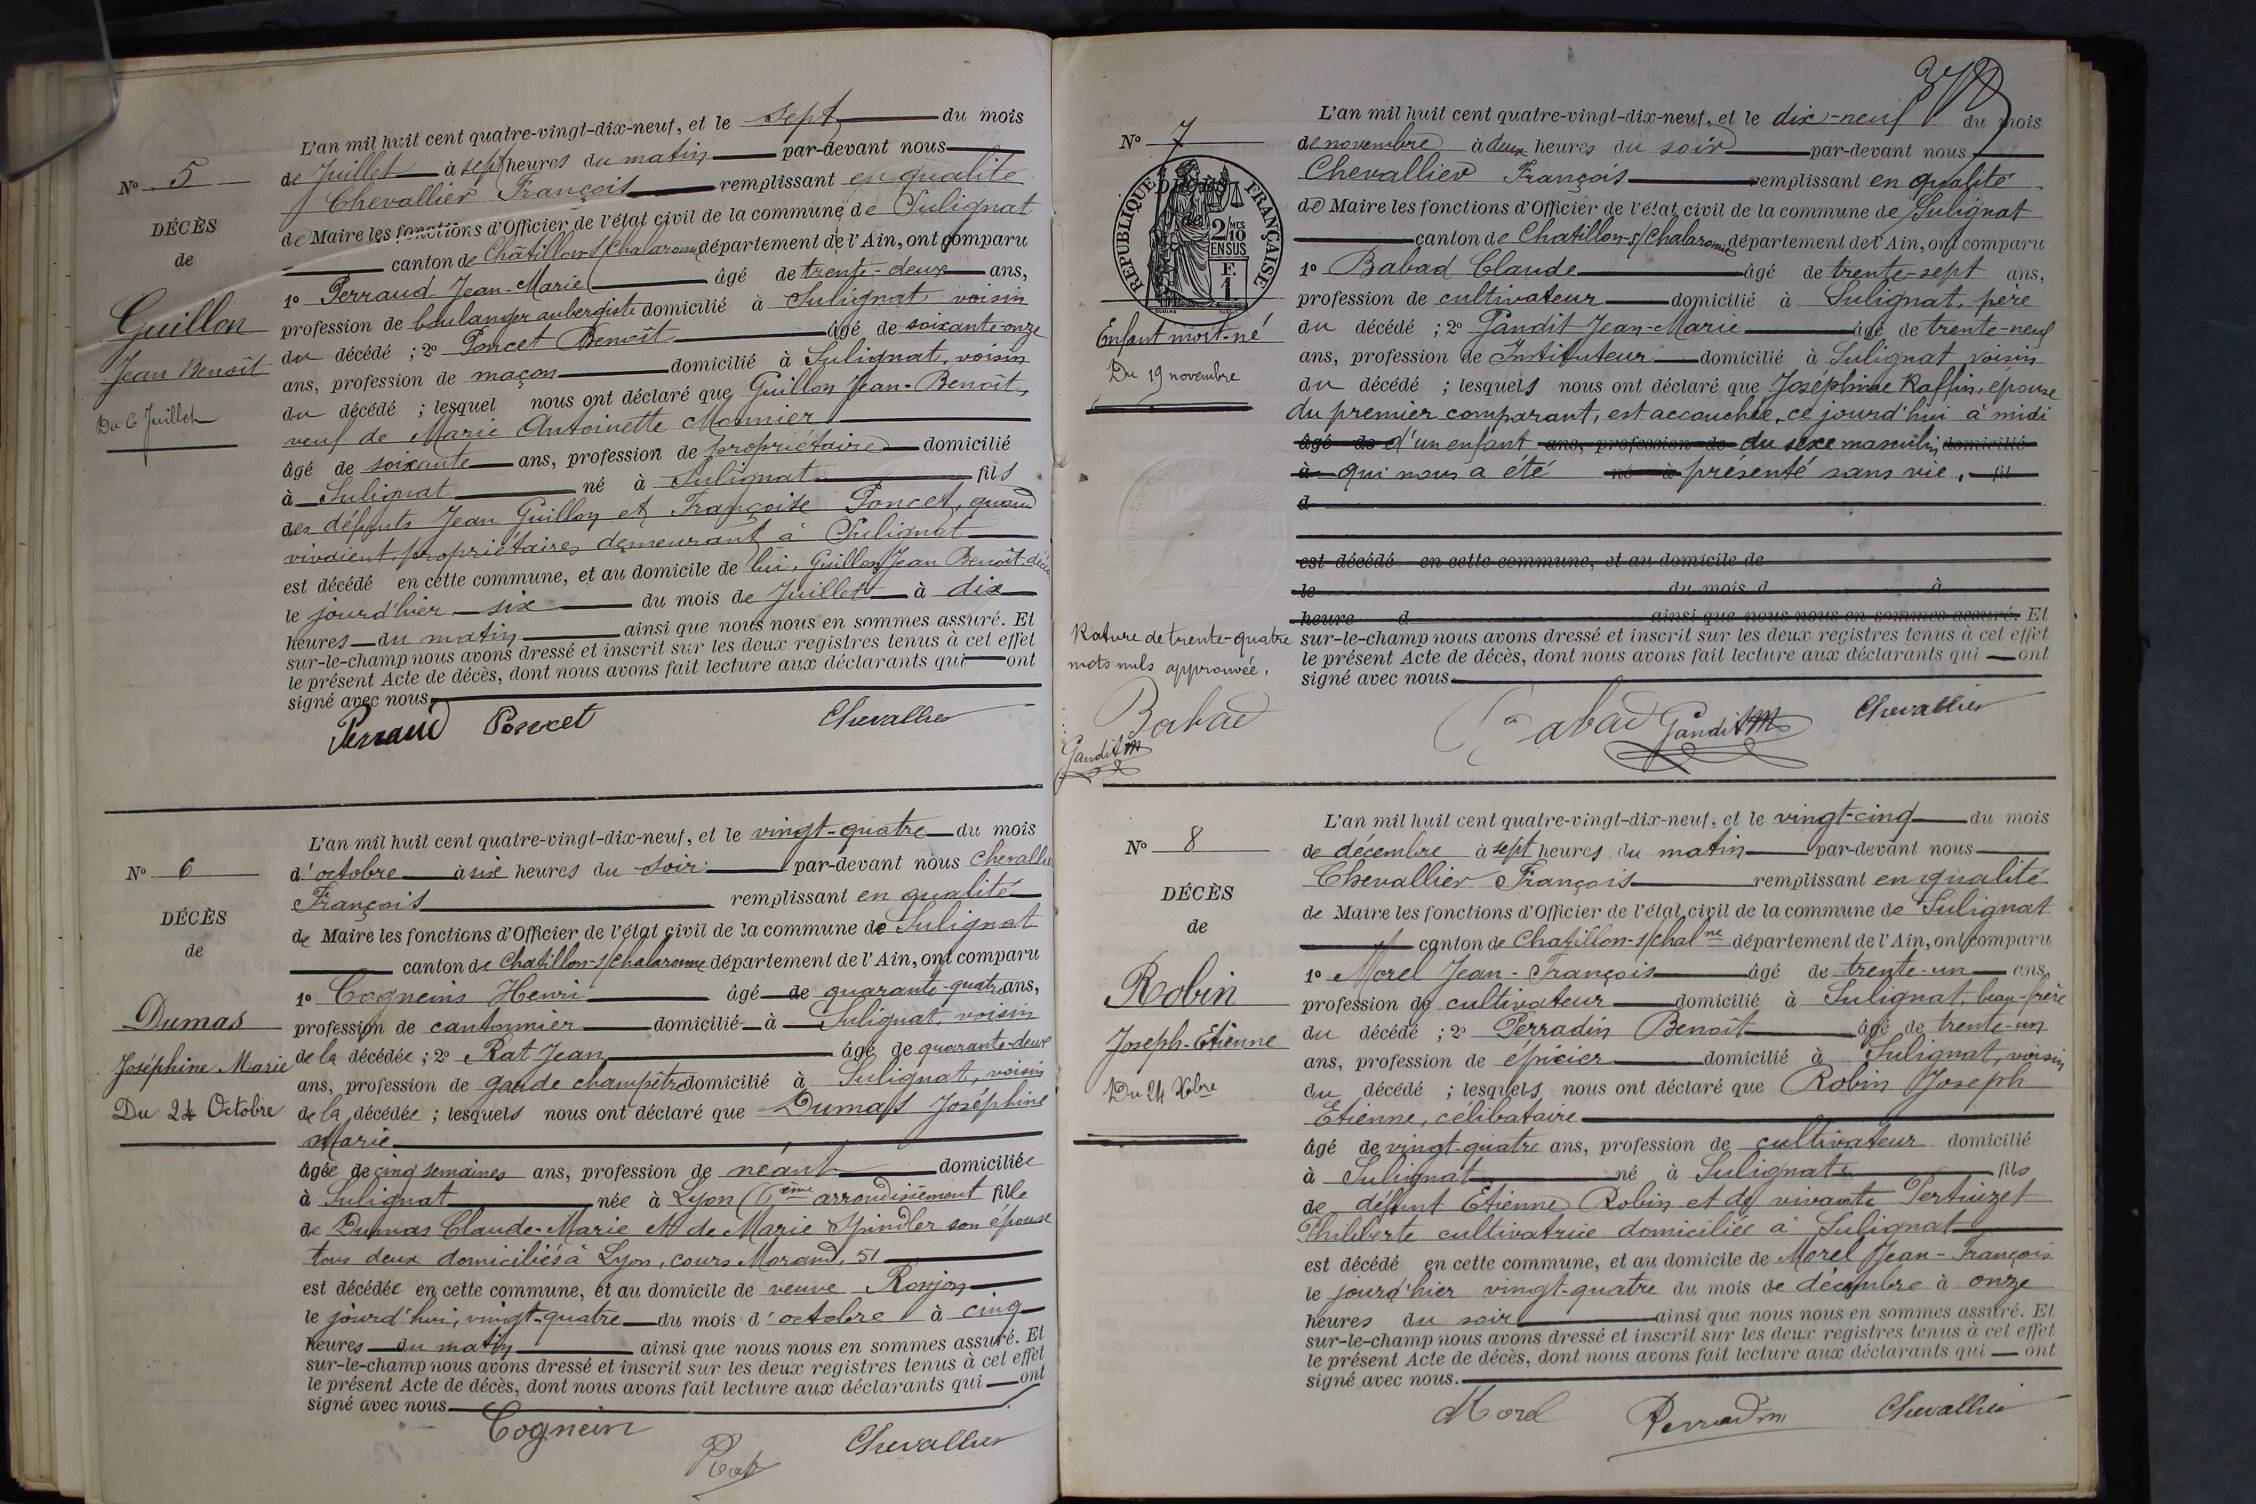 L'an mil huit cent quatre-vingt-dix-neuf, et le sept du mois
de Juillet à sept heures du matin par-devant nous
Chevallier François remplissant en qualité
de Maire les fonctions d'Officier de l'état civil de la commune de Sulignat
canton de Châtillon-s/Chalaronne département de l'Ain, ont comparu
1º Perraud Jean-Marie âgé de trente-deux ans,
profession de boulanger aubergiste domicilié à Sulignat, voisin
du décédé ; 2º Poncet Benoît âgé de soixante-onze
ans, profession de maçon domicilié à Sulignat, voisin
du décédé ; lesquel nous ont déclaré que Guillon Jean-Benoît,
veuf de Marie Antoinette Monnier
âgé de soixante ans, profession de propriétaire domicilié
à Sulignat né à Sulignat fils
des défunts Jean Guillon et Françoise Poncet, quand
vivaient, propriétaires demeurant à Sulignat
est décédé en cette commune, et au domicile de lui, Guillon Jean Benoît décédé
le jourd'hier six du mois de Juillet à dix
heures du matin ainsi que nous nous en sommes assuré. Et
sur-le-champ nous avons dressé et inscrit sur les deux registres tenus à cet effet
le présent Acte de décès, dont nous avons fait lecture aux déclarants qui ont
signé avec nous.
Perraud Poncet Chevallier
Nº 5
DÉCÈS
de
Guillon
Jean Benoît
Du 6 Juillet
L'an mil huit cent quatre-vingt-dix-neuf, et le vingt-quatre du mois
d'octobre à six heures du soir par-devant nous Chevallier
François remplissant en qualité
de Maire les fonctions d'Officier de l'état civil de la commune de Sulignat
canton de Chatillon-s/Chalaronne département de l'Ain, ont comparu
1º Cogneins Henri âgé de quarante-quatre ans,
profession de cantonnier domicilié à Sulignat, voisin
de la décédée ; 2º Rat Jean âgé de quarante-deux
ans, profession de garde champêtre domicilié à Sulignat, voisin
de la décédée ; lesquels nous ont déclaré que Dumas Joséphine
Marie
âgée de cinq semaines ans, profession de néant domiciliée
à Sulignat née à Lyon (6ème arrondissement fille
de Dumas Claude-Marie et de Marie Spindler son épouse
tous deux domiciliés à Lyon, cours Morand, 51
est décédée en cette commune, et au domicile de veuve Ronjon
le jourd'hui, vingt-quatre du mois d'octobre à cinq
heures du matin ainsi que nous nous en sommes assuré. Et
sur-le-champ nous avons dressé et inscrit sur les deux registres tenus à cet effet
le présent Acte de décès, dont nous avons fait lecture aux déclarants qui ont
signé avec nous
Cognein Rat Chevallier
Nº 6
DÉCÈS
de
Dumas
Joséphine Marie
Du 24 Octobre
L'an mil huit cent quatre-vingt-dix-neuf, et le dix-neuf du mois
de novembre à deux heures du soir par-devant nous
Chevallier François remplissant en qualité
de Maire les fonctions d'Officier de l'état civil de la commune de Sulignat
canton de Chatillon-s/Chalaronne département de l'Ain, ont comparu
1º Babad Claude âgé de trente-sept ans,
profession de cultivateur domicilié à Sulignat, père
du décédé ; 2º Gandit Jean-Marie âgé de trente-neuf
ans, profession de Instituteur domicilié à Sulignat voisin
du décédé ; lesquels nous ont déclaré que Joséphine Raffin, épouse
du premier comparant, est accouchée, ce jourd'hui à midi
âgé de d'un enfant ans, profession de du sexe masculin domicilié
à qui nous a été né à présenté sans vie. fil
d
est décédé en cette commune, et au domicile de
le du mois d à
heure d ainsi que nous nous en sommes assuré. Et
sur-le-champ nous avons dressé et inscrit sur les deux registres tenus à cet effet
le présent Acte de décès, dont nous avons fait lecture aux déclarants qui ont
signé avec nous.
Babad Gandit JM Chevallier
Nº 7
RÉPUBLIQUE FRANÇAISE
DÉCÈS
de
2/10 MES
EN SUS
F.
1
Enfant mort-né
Du 19 novembre
Rature de trente-quatre
mots nuls approuvée.
Babad
Gandit JM
L'an mil huit cent quatre-vingt-dix-neuf, et le vingt-cinq du mois
de décembre à sept heures du matin par-devant nous
Chevallier François remplissant en qualité
de Maire les fonctions d'Officier de l'état civil de la commune de Sulignat
canton de Chatillon-s/Chalne département de l'Ain, ont comparu
1º Morel Jean-François âgé de trente-un ans,
profession de cultivateur domicilié à Sulignat, beau-frère
du décédé ; 2º Perradin Benoît âgé de trente-un
ans, profession de épicier domicilié à Sulignat, voisin
du décédé ; lesquels nous ont déclaré que Robin Joseph
Etienne, célibataire
âgé de vingt-quatre ans, profession de cultivateur domicilié
à Sulignat né à Sulignat fils
de défunt Etienne Robin et de vivante Pertuizet
Philiberte cultivatrice domiciliée à Sulignat
est décédé en cette commune, et au domicile de Morel Jean-François
le jourd'hier vingt-quatre du mois de décembre à onze
heures du soir ainsi que nous nous en sommes assuré. Et
sur-le-champ nous avons dressé et inscrit sur les deux registres tenus à cet effet
le présent Acte de décès, dont nous avons fait lecture aux déclarants qui ont
signé avec nous.
Morel Perradin Chevallier
Nº 8
DÉCÈS
de
Robin
Joseph-Etienne
Du 24 Xbre